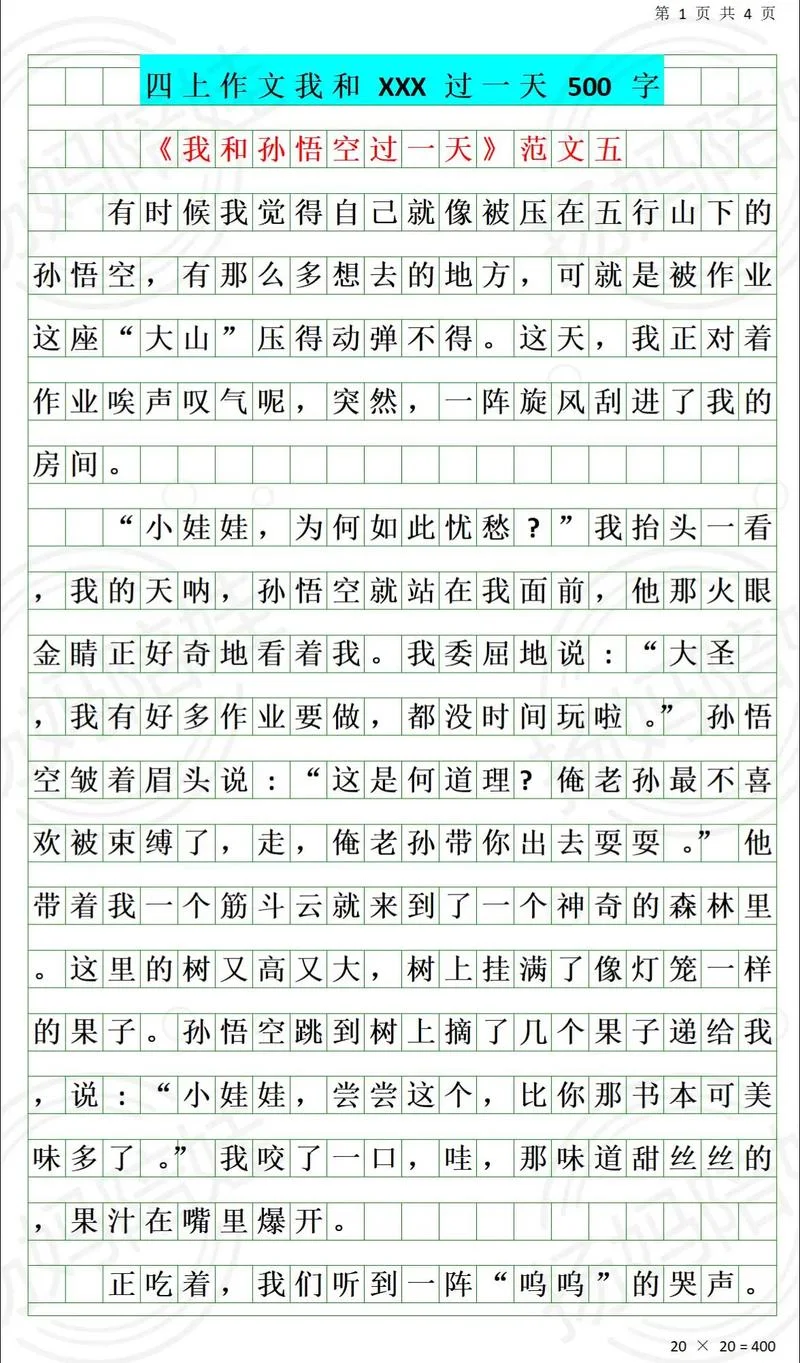 第 1 页 共 4 页
四上作文我和 XXX 过一天 500 字
《我和孙悟空过一天》范文五
有时候我觉得自己就像被压在五行山下的
孙悟空，有那么多想去的地方，可就是被作业
这座“大山”压得动弹不得。这天，我正对着
作业唉声叹气呢，突然，一阵旋风刮进了我的
房间。
“小娃娃，为何如此忧愁？”我抬头一看
，我的天呐，孙悟空就站在我面前，他那火眼
金睛正好奇地看着我。我委屈地说：“大圣
，我有好多作业要做，都没时间玩啦。”孙悟
空皱着眉头说：“这是何道理？俺老孙最不喜
欢被束缚了，走，俺老孙带你出去耍耍。”他
带着我一个筋斗云就来到了一个神奇的森林里
。这里的树又高又大，树上挂满了像灯笼一样
的果子。孙悟空跳到树上摘了几个果子递给我
，说：“小娃娃，尝尝这个，比你那书本可美
味多了。”我咬了一口，哇，那味道甜丝丝的
，果汁在嘴里爆开。
正吃着，我们听到一阵“呜呜”的哭声。
20 × 20 = 400
扬妈陪娃